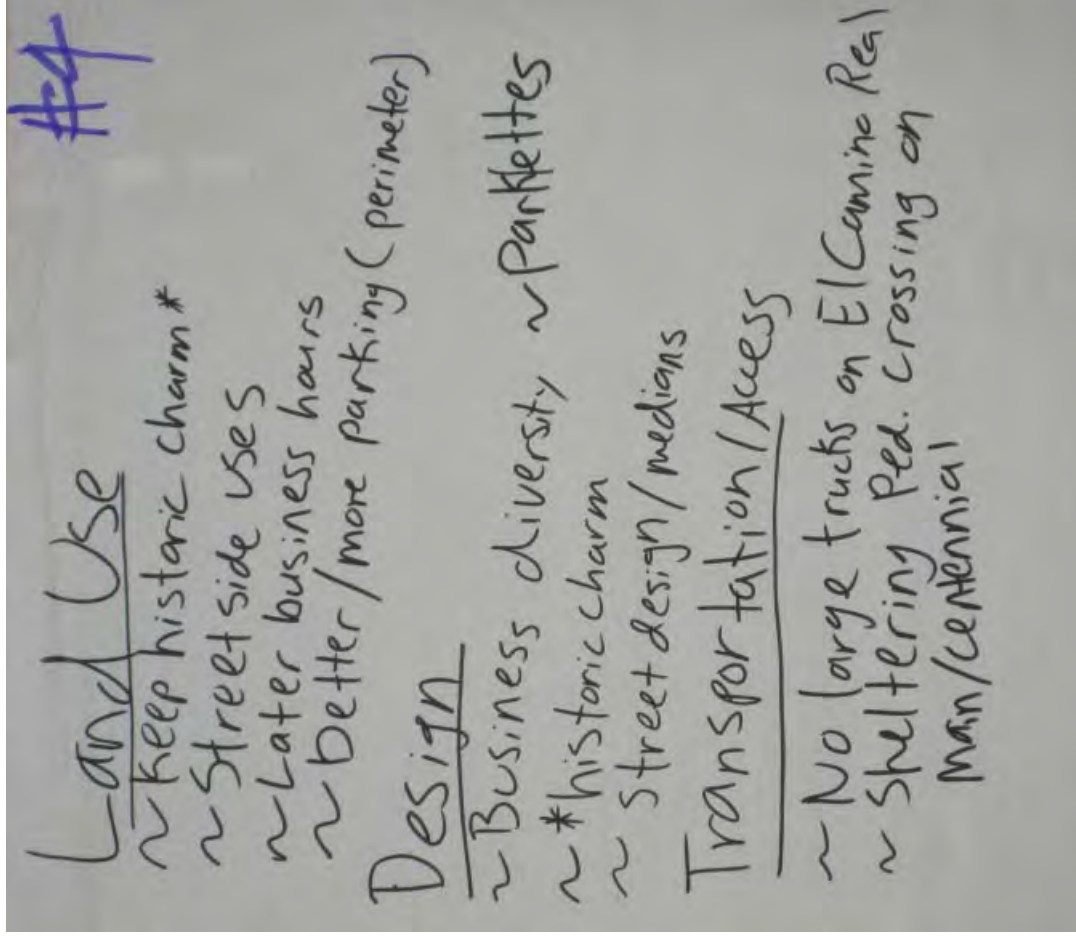 #4
Land Use
~ Keep historic charm*
~ Street side uses
~ Later business hours
~ better/more parking (perimeter)
Design
~ Business diversity ~ Parklettes
~ *historic charm
~ Street design/medians
Transportation/Access
~ No large trucks on El Camino Real
~ Sheltering Ped. crossing on
Main/Centennial